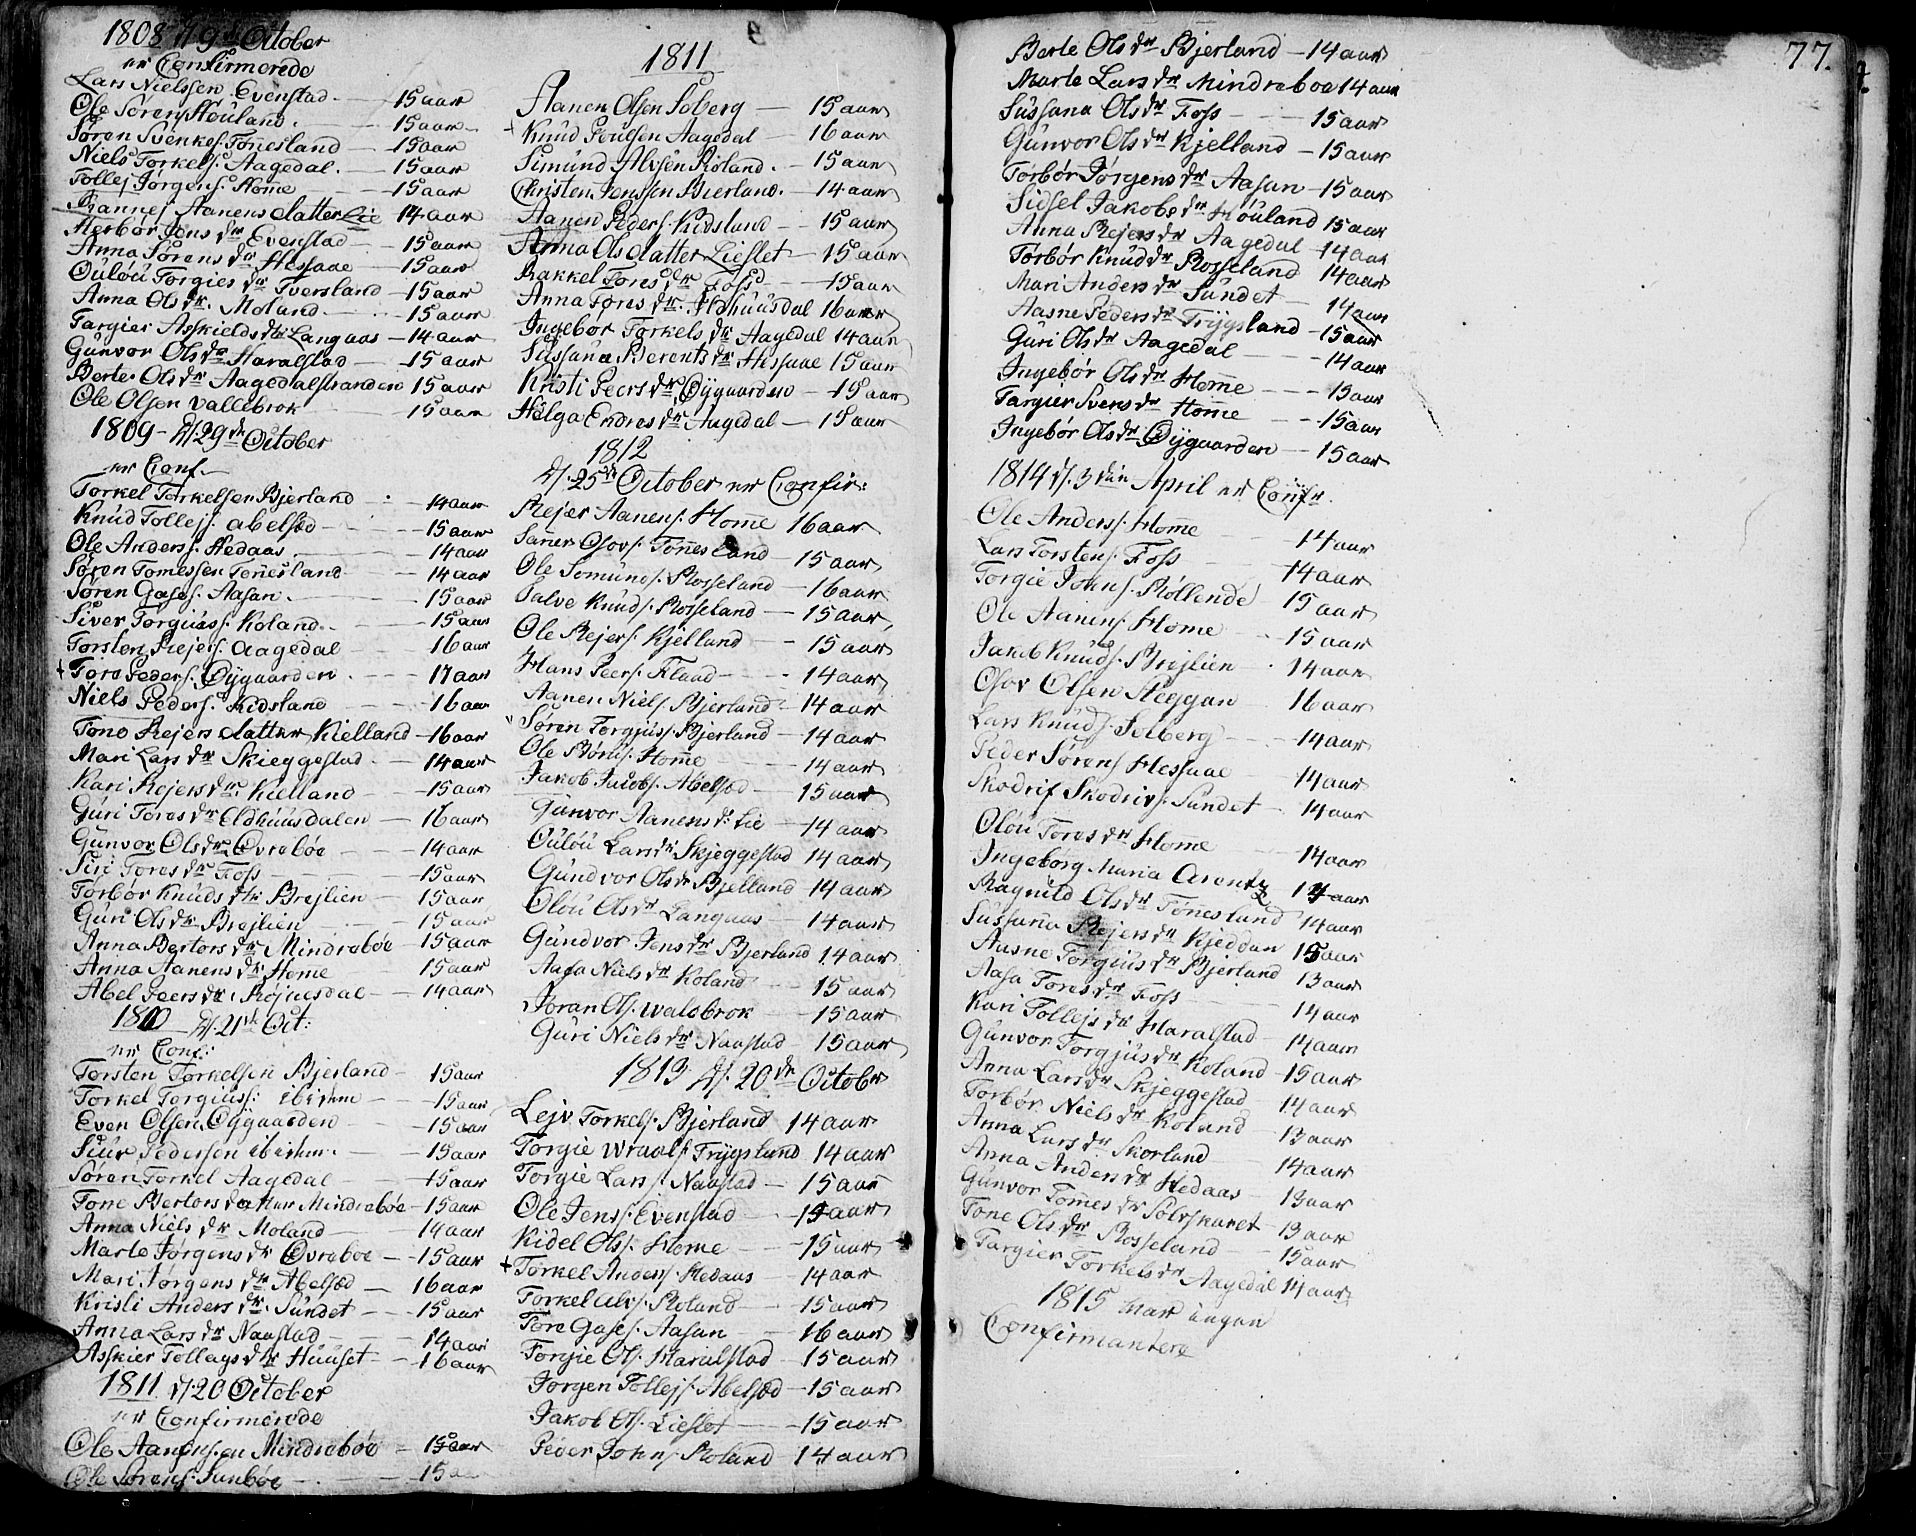 1808 d. 9de October
er Confirmerede
Lars Nielssen Evenstad 15 aar
Ole Sørens Høuland 15 aar
Søren Svenkes. Tonnesland 15 aar
Niels Torkels. Aagedal 15 aar
Tollej Jørgens. Home 15 aar
Rannej Aanens datter Lie 14 aar
Herbør Jens dr Evenstad 15 aar
Anna Sørens dr Hessaae 15 aar
Ouloù Torgies dr Tversland 15 aar
Anna Ols dr Moland 15 aar
Targier Asskields dr Langaas 14 aar
Gunvor Ols dr Haralstad 15 aar
Berte Ols dr Aagedalstranden 15 aar
Ole Olsen Vallebrok 15 aar
1809 d. 29de October
er Conf.
Torkel Torkelsen Bjerland 14 aar
Knud Tollejs. Abelsæd 15 aar
Ole Anders. Hedaas 14 aar
Søren Tomessen Tonnesland 14 aar
Søren Gases. Aasan 15 aar
Siver Torguiss. Koland 15 aar
Torsten Rejers. Aagedal 16 aar
+ Tore Peders. Øygaarden 17 aar
Niels Peders. Kidsland 16 aar
Tone Rejers datter Kielland 16 aar
Mari Lars dr Skieggestad 14 aar
Kari Rejers dr Kielland 15 aar
Guri Tores dr Eldhuusdalen 16 aar
Gunvor Ols dr Øvrebøe 14 aar
Siri Tores dr Foss 15 aar
Torbør Knuds dr Brejlien 15 aar
Guri Ols dr Brejlien 15 aar
Anna Bertors dr Mindrebøe 15 aar
Anna Aanens dr Home 15 aar
Abel Peers dr Røjnesdal 14 aar
1810 d. 21de Oct:
er Conf:
Torsten Torkelsen Bjerland 15 aar
Torkel Torgiuss: ibidem 15 aar
Even Olsen Øygaarden 15 aar
Siur Pedersen ibidem 15 aar
Søren Torkel Aagedal 15 aar
Tone Bertors datter Mindrebøe 15 aar
Anna Niels dr Moland 14 aar
Marte Jørgens dr Øvrebøe 15 aar
Mari Jørgens dr Abelsæd 16 aar
Kristi Anders dr Sundet 15 aar
Anna Lars dr Naustad 14 aar
Asskier Tollags dr Huuset 16 aar
1811 d. 20 October
er Confirmerede
Ole Aanensen Mindrebøe 15 aar
Ole Sørens. Sunbøe 15
1811
Aanen Olsen Soberg 15 aar
+ Knud Poulsen Aagedal 16 aar
Simund Alvsen Roland 15 aar
Christen Jenssen Bierland 14 aar
Aanen Peders. Kidsland 15 aar
Anna Ols datter Lieslet 15 aar
Rakkel Tores dr Foss 15 aar
Anna Tores dr Ildhuusdal 16 aar
Ingebør Torkels dr Aagedal 14 aar
Sussana Berents dr Hessaae 15 aar
Kristi Peers dr Øygaarden 15 aar
Helga Endres dr Augedal 15 aar
1812
d. 25de October er Confir:
Rejer Aanens. Home 16 aar
Saner Osovs. Tonnesland 15 aar
Ole Somunds. Rosseland 16 aar
Salve Knuds. Rosseland 15 aar
Ole Rejers. Kjelland 15 aar
Hans Peers. Flaad 14 aar
Aanen Niels. Bjerland 14 aar
Søren Torgjus. Bjerland 14 aar
Ole Børus. Home 14 aar
Jakob Jacobs. Abelsæd 15 aar
Gunvor Aanens d. Lie 14 aar
Ouloù Lars dr Skjeggestad 14 aar
Gundvor Ols dr Bjelland 14 aar
Oloù Ols dr Langaas 14 aar
Gundvor Jens dr Bjerland 14 aar
Aasa Niels dr Koland 15 aar
Joran Ols. Walsbrok 15 aar
Guri Niels dr Naustad 15 aar
1813 d. 20de October
Lejv Torkels. Bjerland 14 aar
Torgie Wraals. Trygsland 14 aar
Torgie Lars. Naustad 15 aar
Ole Jens. Evenstad 15 aar
Kidel Olss. Home 15 aar
+ Torkel Anders. Hedaas 14 aar
Torkel Alvs. Roland 15 aar
Tore Gases. Aasan 16 aar
Torgie Ols. Haralstad 15 aar
Jørgen Tollejs. Abelsæd 15 aar
Jakob Ols. Lieslet 15 aar
Peder Johns. Roland 14 aar
77.
Berte Ols dr Bjerland 14 aar
Marte Lars dr Mindreboe 14 aar
Sussana Ols dr Foss 15 aar
Gunvor Ols dr Kjelland 15 aar
Torbør Jørgens dr Aasan 15 aar
Sidsel Jakobs dr Høuland 15 aar
Anna Rejers dr Aagedal 14 aar
Torbør Knud dr Rosseland 14 aar
Mari Anders dr Sundet 14 aar
Aasne Peders dr Trygsland 15 aar
Guri Ols dr Aagedal 14 aar
Ingebør Ols dr Home 15 aar
Targier Svens dr Home 15 aar
Ingebør Ols dr Øygaarden 15 aar
1814 d. 3die April er Confr.
Ole Anders. Home 14 aar
Lars Torstens. Foss 14 aar
Torgie Johns. Røllende 15 aar
Ole Aanens. Home 15 aar
Jakob Knuds. Brejlien 14 aar
Osov Olsen Heggan 16 aar
Lars Knuds. Solberg 14 aar
Peder Sørens. Hessaae 14 aar
Skodrif Skodrivs. Sundet 14 aar
Oloù Tores dr Home 14 aar
Ingeborg Maria Arentz 14 aar
Magnild Ols dr Tonnesland 14 aar
Sussanna Rejers dr Kjeddan 15 aar
Aasne Torgius dr Bjerland 13 aar
Aasa Tores dr Foss 14 aar
Kari Tollejs dr Haralstad 14 aar
Gunvor Torgjus dr Koland 15 aar
Anna Lars dr Skjeggestad 14 aar
Torbør Niels dr Koland 13 aar
Anna Lars dr Skorland 14 aar
Anna Anders dr Hedaas 13 aar
Gunvor Tomes dr Solvskaret 13 aar
Tone Ols dr Rosseland 15 aar
Targier Torkels dr Aagedal 14 aar
1815 war ingen
Confirmantere